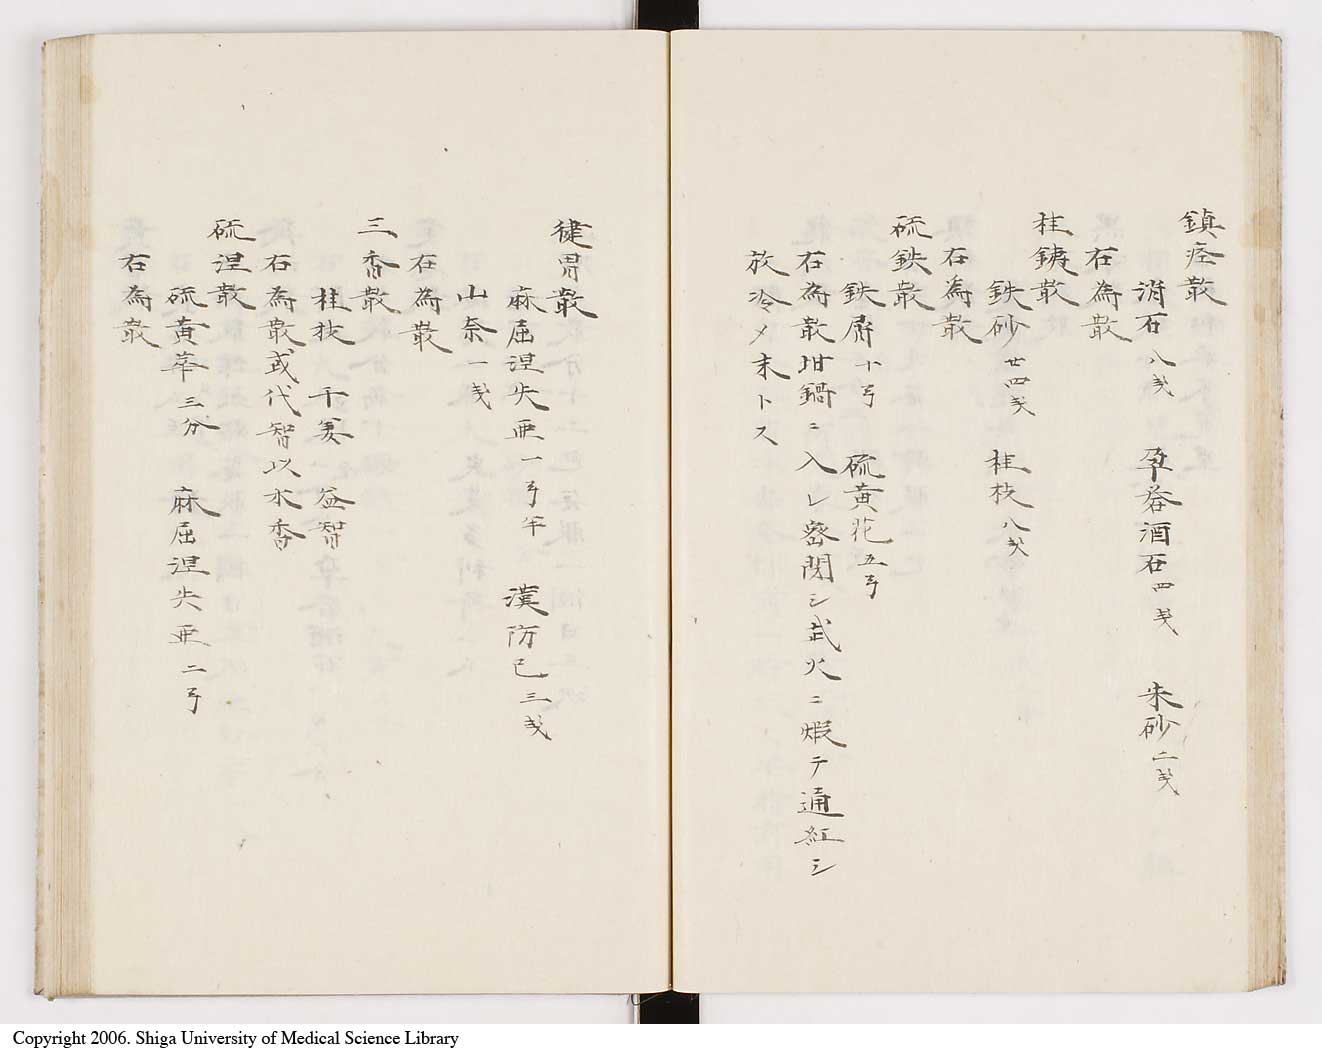 鎮痙散
消石 八戔 孕礬酒石 四戔 朱砂 二戔
右為散
桂銕散
鉄砂 廿四戔 桂枝 八戔
右為散
硫鉄散
鉄屑 十弓 硫黄花 五弓
右為散坩鍋ニ入レ密閉シ武火ニ煆テ通紅シ
放冷メ末トス
健胃散
麻屈涅失亜 一弓半 漢防已 三戔
山奈 一戔
右為散
三香散
桂枝 干姜 益智
右為散或代智以水香
硫涅散
硫黄華 三分 麻屈涅失亜 二弓
右為散
Copyright 2006. Shiga University of Medical Science Library